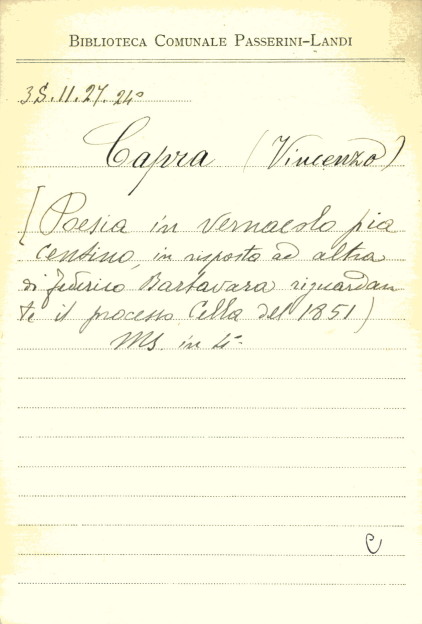 BIBLIOTECA COMUNALE PASSERINI-LANDI
3S.11.27.24º
Capra (Vincenzo)
[Poesia in vernacolo pia
centino, in risposta ad altra
di Federico Barbavara riguardan
te il processo Cella del 1851)
MS. in 4º
C